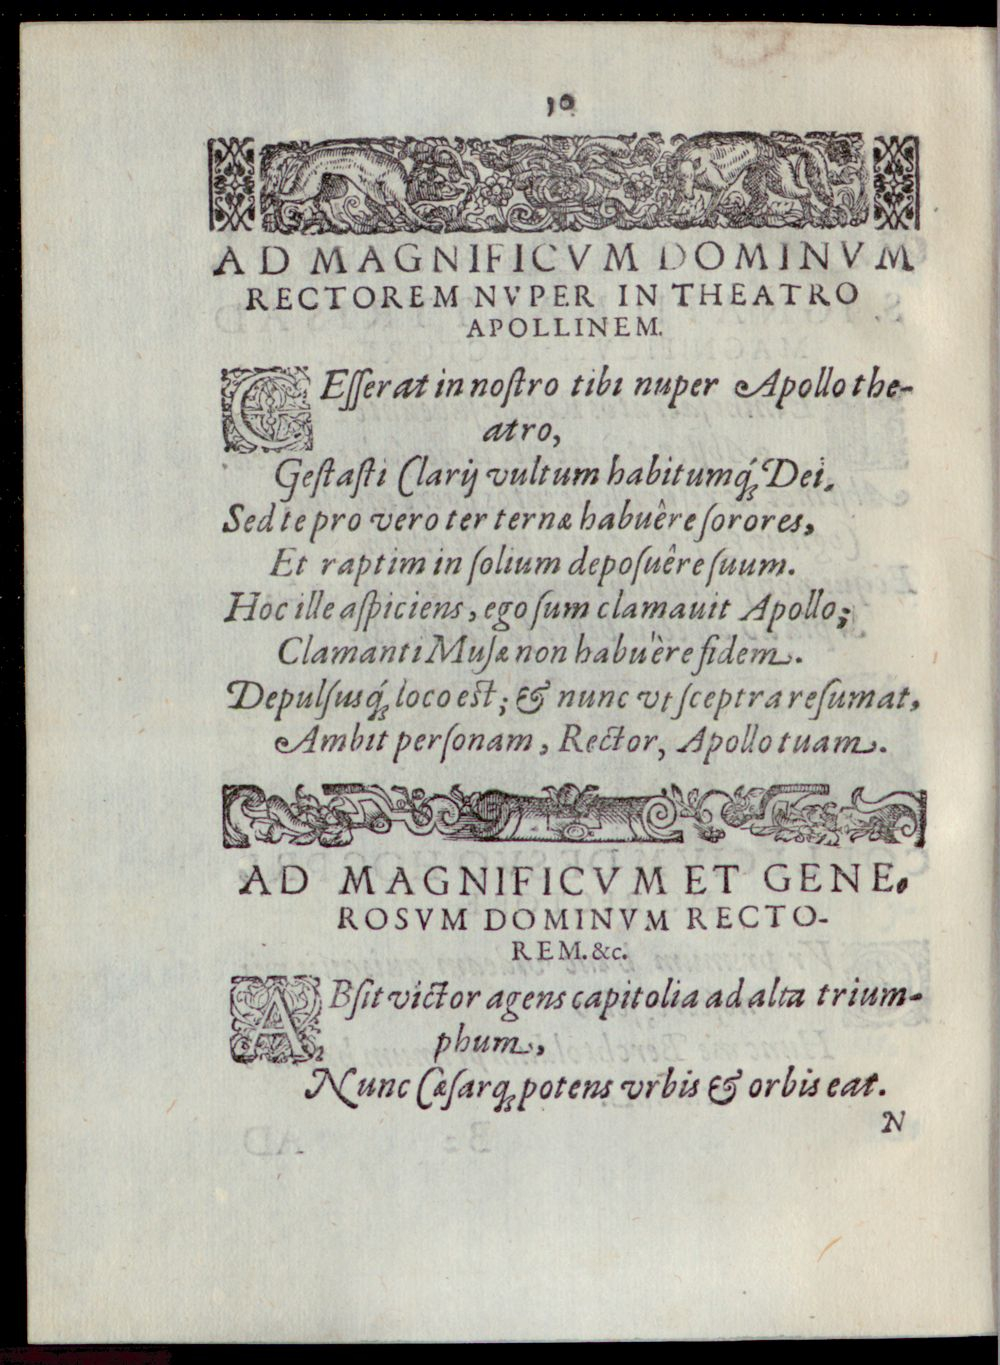 10
AD MAGNIFICVM DOMINVM
RECTOREM NVPER IN THEATRO
APOLLINEM.
CEſſerat in noſtro tibi nuper Apollo the-
atro,
Geſtaſti Clarij vultum habitumq́; Dei.
Sed te pro vero ter ternæ habuêre ſorores,
Et raptim in ſolium depoſuêre ſuum.
Hoc ille aſpiciens, ego ſum clamauit Apollo;
Clamanti Muſæ non habuêre fidem.
Depulſusq́; loco est; & nunc vt ſceptra reſumat,
Ambit perſonam, Rector, Apollo tuam.
AD MAGNIFICVM ET GENE.
ROSVM DOMINVM RECTO-
REM. &c.
ABſit victor agens capitolia ad alta trium-
phum,
Nunc Cæſarq; potens vrbis & orbis eat.
N